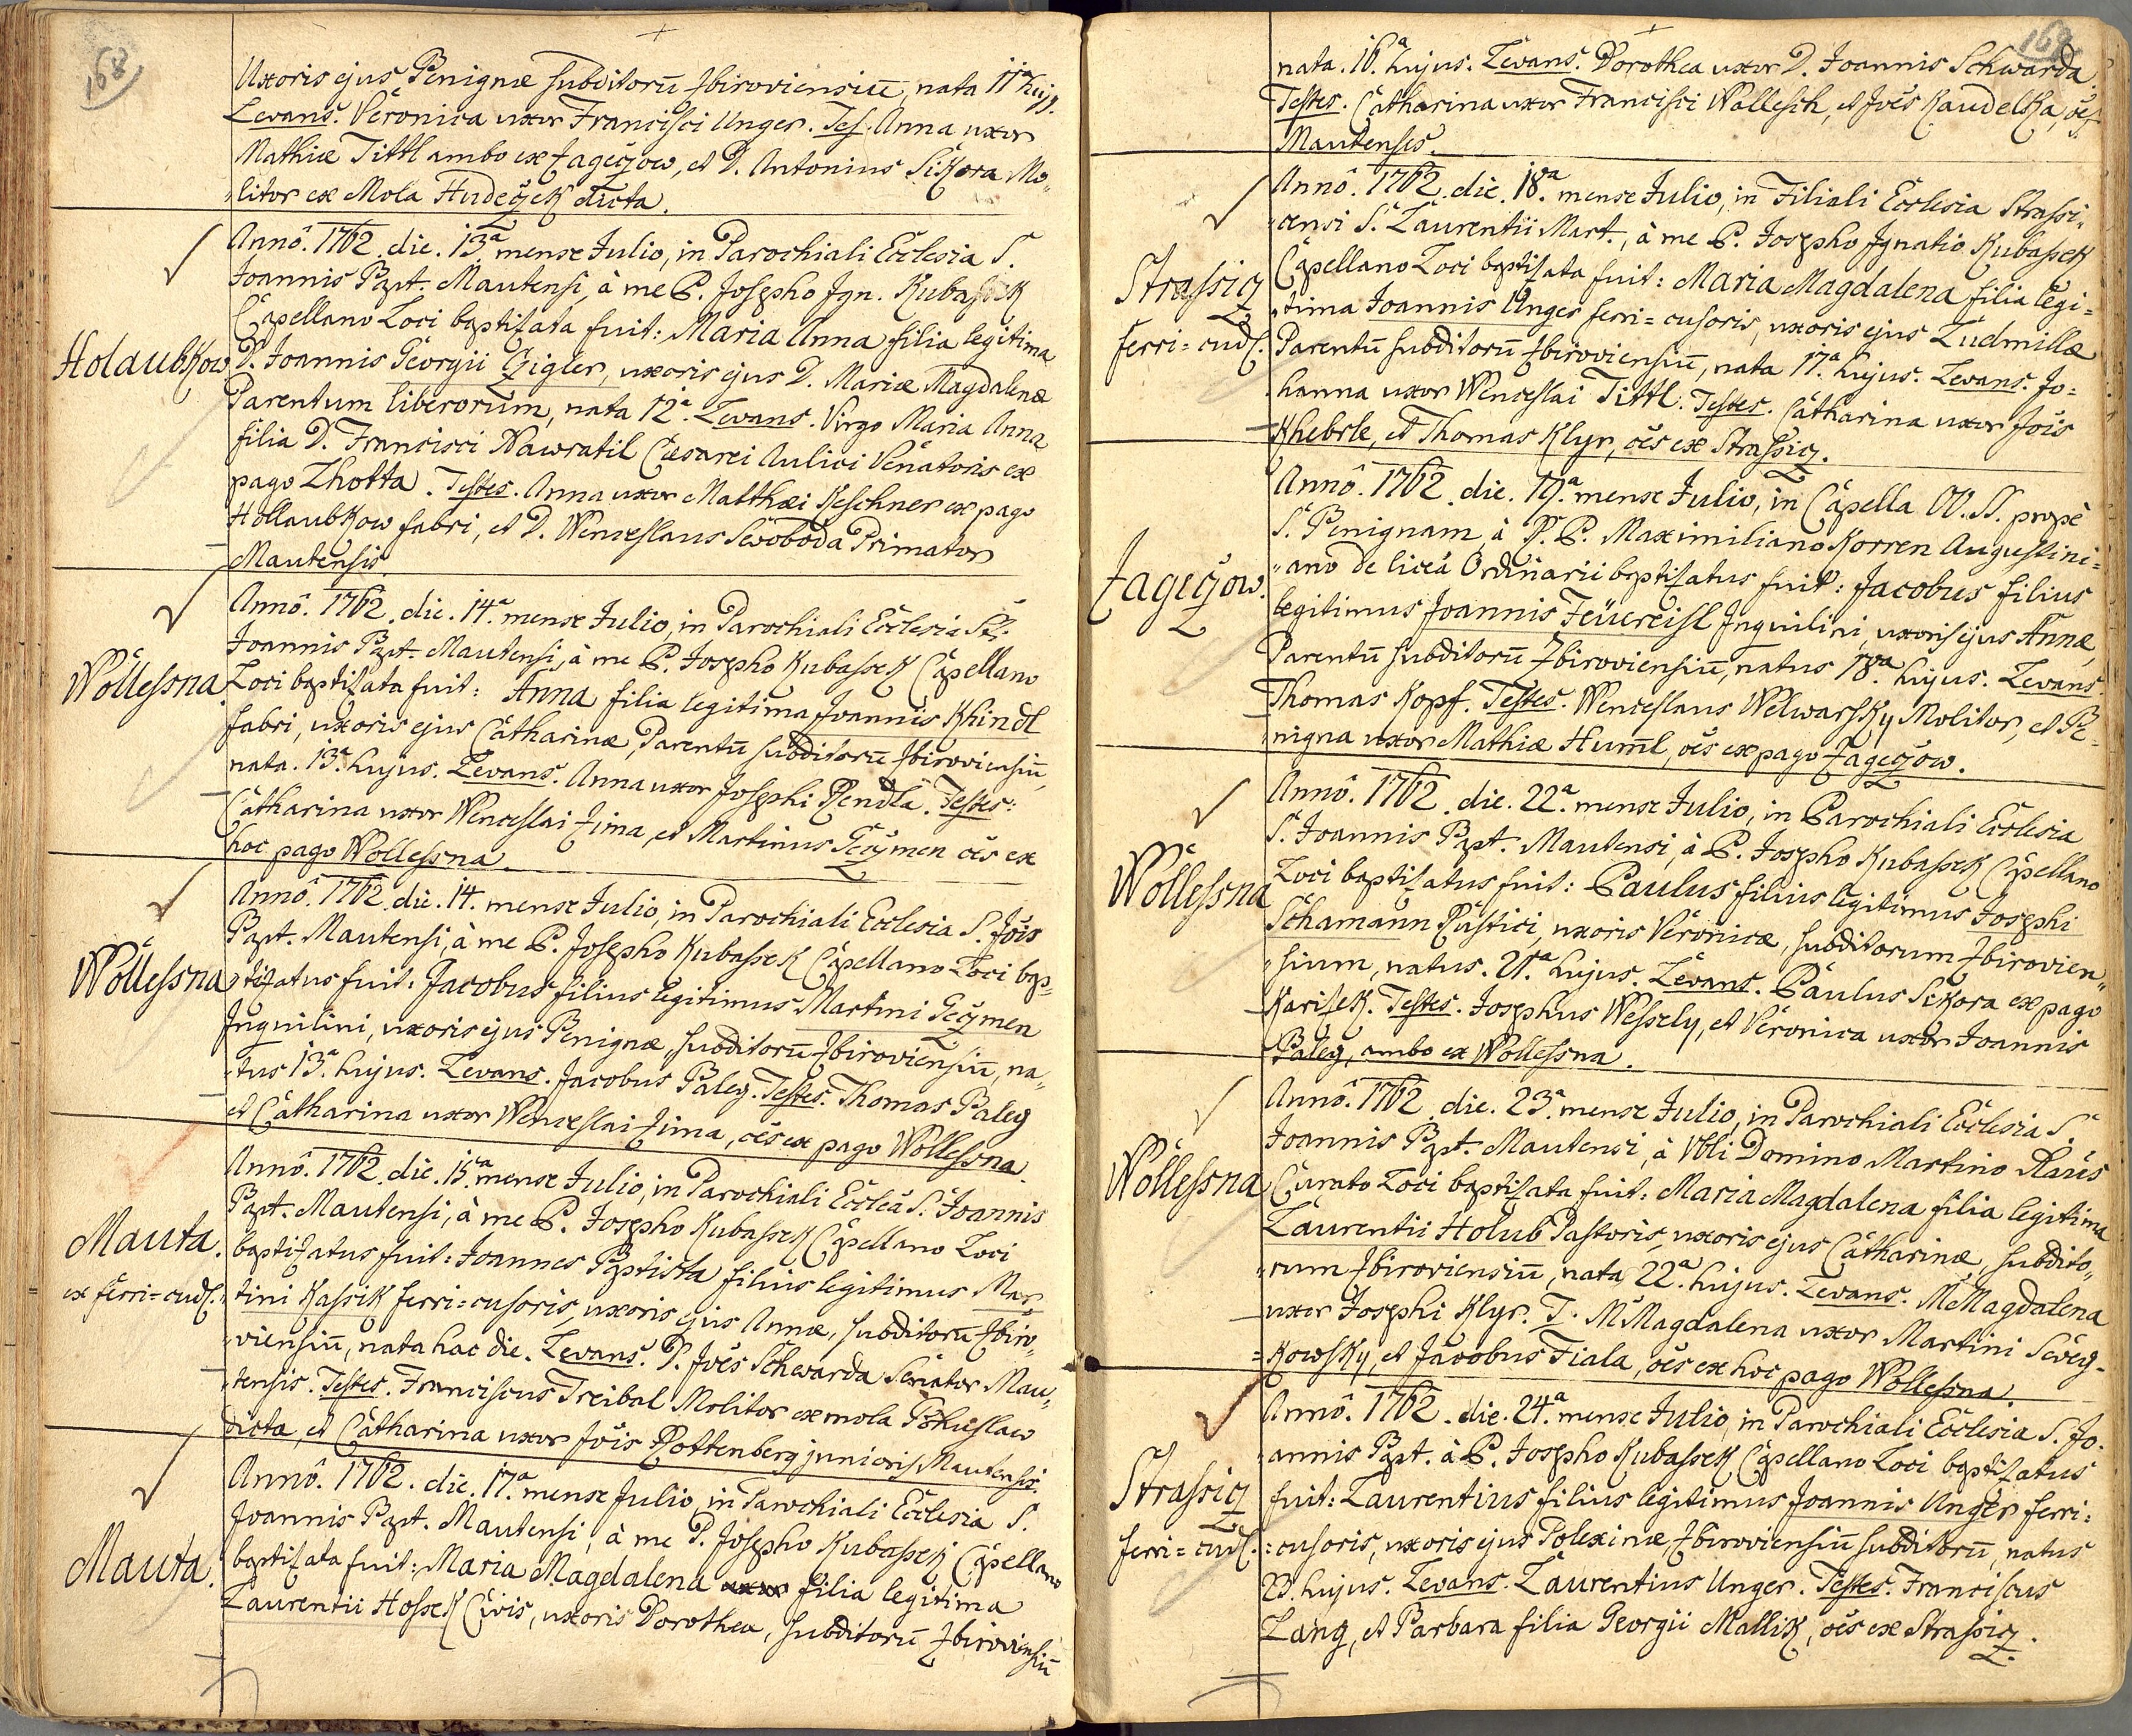 168
Uxoris ejus Benignæ subditorū Zbiroviensiū, nata 11ª hujg.
Levans. Veronica uxor Francisci Unger. Tes. Anna uxor
Mathiæ Tittl ambo ex Zageczow, et D. Antonius Sikora Mo„
„litor ex Mola Hudeczek dicta.
Holaubkow
Annô. 1762. die. 13ª. mense Julio, in Parochiali Ecclesia S.
Joannis Bapt. Mautensi, à me P. Josepho Ign. Kubassek
Capellano Loci baptizata fuit: Maria Anna filia legitima
D. Joannis Georgii Czigler, uxoris ejus D. Mariæ Magdalenæ
Parentum liberorum, nata 12ª. Levans. Virgo Maria Anna
filia D. Francisci Nawratil Cæsarei Aulici Venatoris ex
pago Lhotta. Testes. Anna uxor Matthæi Keschner ex pago
Hollaubkow fabri, et D. Wenceslaus Swoboda Primator
Mautensis.
Wollessna.
Annô. 1762. die. 14ª. mense Julio, in Parochiali Ecclesia Sti.
Joannis Bapt. Mautensi, à me P. Josepho Kubassek Capellano
Loci baptizata fuit: Anna filia legitima Joannis Khindl
fabri, uxoris ejus Catharinæ, Parentū subditorū Zbiroviensiū,
nata. 13ª. hujus. Levans. Anna uxor Josephi Rendla. Testes:
Catharina uxor Wenceslai Zima, et Martinus Geczmen oēs ex
hoc pago Wollessna.
Wollessna
Annô. 1762. die. 14. mense Julio, in Parochiali Ecclesia S. Jois
Bapt. Mautensi, à me P. Josepho Kubassek Capellano Loci bap=
„tizatus fuit: Jacobus filius legitimus Martini Geczmen
Inquilini, uxoris ejus Benignæ, subditorū Zbiroviensiū, na„
„tus 13ª. hujus. Levans. Jacobus Baley. Testes. Thomas Baley
et Catharina uxor Wenceslai Zima, oēs ex pago Wollessna.
Mauta.
ex ferri=cud.
Annô. 1762. die. 15ª. mense Julio, in Parochiali Ecclēa S. Joannis
Bapt. Mautensi, à me P. Josepho Kubassek Capellano Loci
baptizatus fuit: Joannes Baptista filius legitimus Mar„
„tini Kassik ferri=cusoris, uxoris ejus Annæ, subditorū Zbiro„
„viensiū, nata hac die. Levans. D. Joēs Schwarda Senator Mau„
„tensis. Testes. Franciscus Treibal Molitor ex mola
dicta, et Catharina uxor Jois Rottenberg junioris Mautensis.
Mauta.
Annô. 1762. die. 17ª. mense Julio, in Parochiali Ecclesia S.
Joannis Bapt. Mautensi, à me P. Josepho Kubassek Capellano
baptizata fuit: Maria Magdalena filia legitima
Laurentii Hossek Civis, uxoris Dorothea, subditorū Zbiroviensiū
169
nata. 16ª. hujus. Levans. Dorothea uxor D. Joannis Schwarda.
Testes. Catharina uxor Francisci Wallesch, et Joēs Kaudelka, oēs
Mautenses.
Strassicz
ferri=cud.
Annô. 1762. die. 18ª. mense Julio, in Filiali Ecclesia Strassi„
„censi S. Laurentii Mart., à me P. Josepho Ignatio Kubassek
Capellano Loci baptizata fuit: Maria Magdalena filia legi=
„tima Joannis Unger ferri=cusoris, uxoris ejus Ludmillæ
Parentū subditorū Zbiroviensiū, nata 17ª. hujus. Levans. Jo=
hanna uxor Wenceslai Tittl. Testes. Catharina uxor Jois
Kheberle, et Thomas Klyr, oēs ex Strassicz.
Zageczow.
Annô. 1762. die. 19ª. mense Julio, in Capella OO. SS. propè
S. Benignam, à R. P. Maximiliano Korren Augustini=
„ano de liceâ Ordinarii baptizatus fuit: Jacobus filius
legitimus Joannis Feüereisl Inquilini, uxoris ejus Annæ,
Parentū subditorū Zbiroviensiū, natus 18ª. hujus. Levans.
Thomas Kopf. Testes. Wenceslaus Welwarsky Molitor, et Be=
nigna uxor Mathiæ Huml, oēs ex pago Zageczow.
Wollessna
Annô. 1762. die. 22ª. mense Julio, in Parochiali Ecclesia
S. Joannis Bapt. Mautensi, à P. Josepho Kubassek Capellano
Loci baptizatus fuit: Paulus filius legitimus Josephi
Schamann Rustici, uxoris Veronicæ, subditorum Zbirovien„
„sium, natus. 21ª. hujus. Levans. Paulus Sikora ex pago
Karisek. Testes. Josephus Wessely, et Veronica uxor Joannis
Baley, ambo ex Wollessna.
Wollessna
Annô. 1762. die. 23ª. mense Julio, in Parochiali Ecclesia S.
Joannis Bapt. Mautensi, à Vbli Domino Martino Klaus
Curato Loci baptizata fuit: Maria Magdalena filia legitima
Laurentii Holub Pastoris, uxoris ejus Catharinæ, subdito„
„rum Zbiroviensiū, nata 22ª. hujus. Levans. M Magdalena
uxor Josephi Klyr. T. M Magdalena uxor Martini Swey=
=kowsky, et Jacobus Fiala, oēs ex hoc pago Wollessna.
Strassicz
ferri=cud.
Annô. 1762. die. 24ª. mense Julio, in Parochiali Ecclesia S. Jo.
annis Bapt. à P. Josepho Kubassek Capellano Loci baptizatus
fuit: Laurentius filius legitimus Joannis Unger ferri=
=cusoris, uxoris ejus Polexinæ, Zbiroviensiū subditorū, natus
23. hujus. Levans. Laurentius Unger. Testes. Franciscus
Lang, et Barbara filia Georgii Mallik, oēs ex Strassicz.